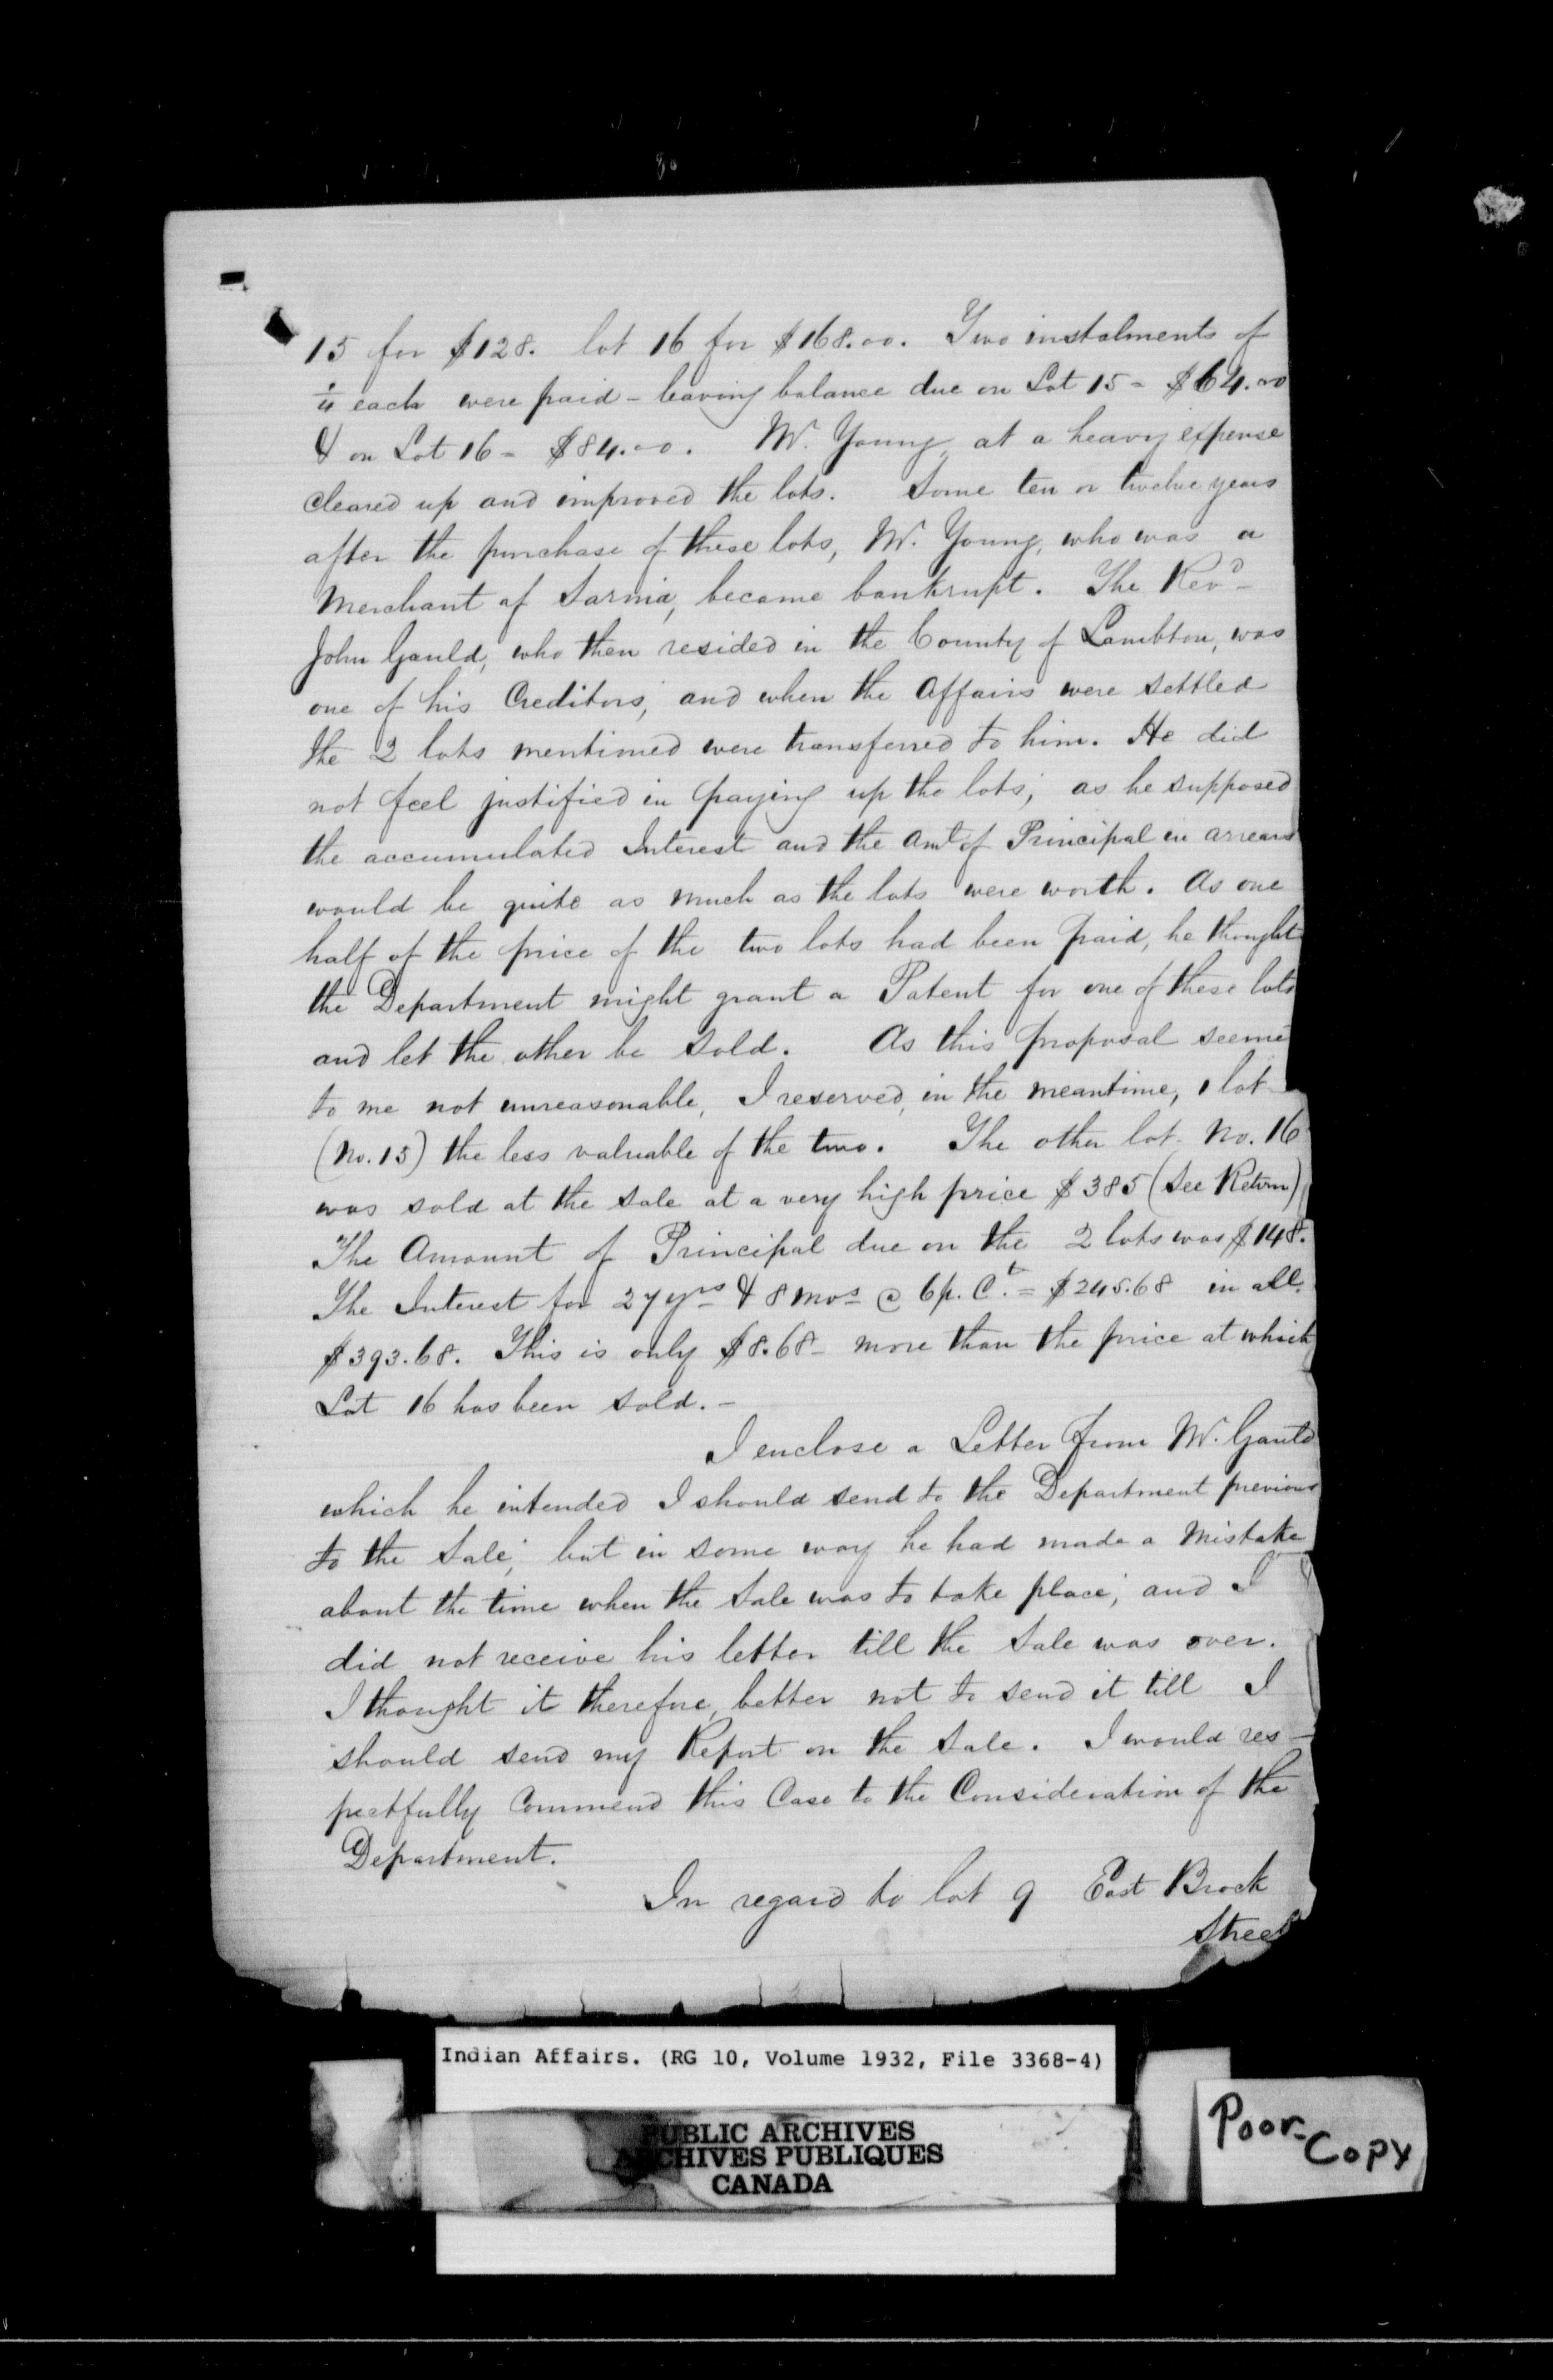 15 for $128. lot 16 for $168.00. Two instalments of
1/4 each were paid - leaving balance due on Lot 15 = $64.00
& on Lot 16 = $84.00. Mr. Young, at a heavy expense
cleared up and improved the lots. Some ten or twelve years
after the purchase of these lots, Mr. Young, who was a
Merchant of Sarnia, became bankrupt. The Revd
John Gauld, who then resided in the County of Lambton, was
one of his Creditors, and when the Affairs were settled
the 2 lots mentioned were transferred to him. He did
not feel justified in paying up the lots, as he supposed
the accumulated Interest and the Amt of Principal in arrears
would be quite as much as the lots were worth. As one
half of the price of the two lots had been paid, he thought
the Department might grant a Patent for one of these lots
and let the other be sold. As this proposal seemed
to me not unreasonable, I reserved, in the meantime, 1 lot
(No. 15) the less valuable of the two. The other lot No. 16
was sold at the sale at a very high price $385 (See Return)
The Amount of Principal due on the 2 lots was $148.
The Interest for 27 yrs & 8 mos @ 6 p. Ct. = $245.68 in all.
$393.68. This is only $8.68 - more than the price at which
Lot 16 has been sold. -
I enclose a Letter from Mr. Gauld
which he intended I should send to the Department previous
to the Sale, but in some way he had made a Mistake
about the time when the Sale was to take place, and I
did not receive his letter till the Sale was over.
I thought it therefore, better not to send it till I
should send my Report on the Sale. I would res-
pectfully Commend this Case to the Consideration of the
Department.
In regard to lot 9 East Brock
Street
Indian Affairs. (RG 10, Volume 1932, File 3368-4)
PUBLIC ARCHIVES
ARCHIVES PUBLIQUES
CANADA
Poor-
Copy